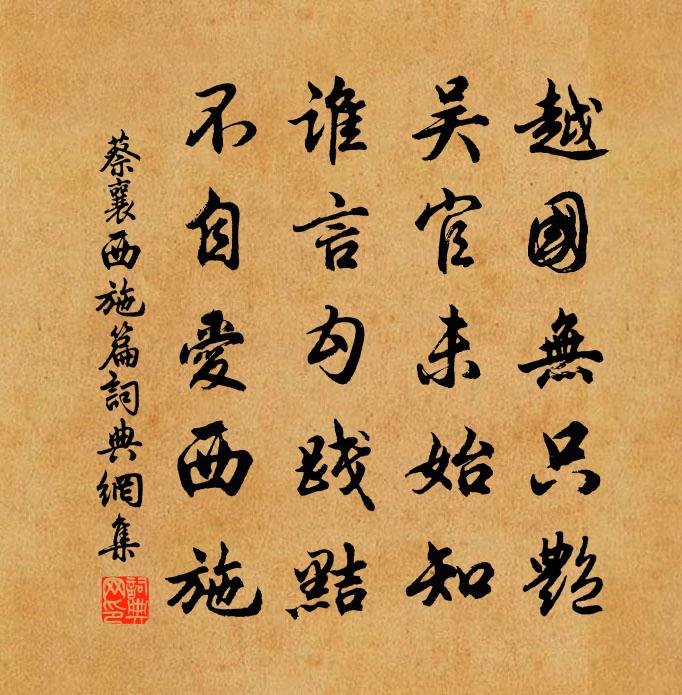 越國無只艷
吴官未始知
誰言勾踐黠
不自愛西施
蔡襄西施篇詞典網集
詞典網印